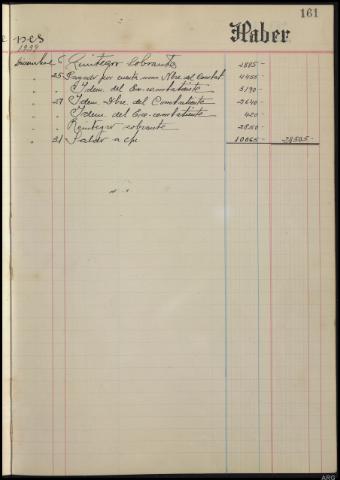 161
Haber
nes
1939
Diciembre 6 Reintegro sobrantes 2885-
" 25 Pagado por cuenta nom Nbre. del Combat 4455-
" " Idem. del Ex-combatiente 5190-
" 27 Idem. Nbre. del Combatiente 2640-
" " Idem. del Ex-combatiente 420-
" " Reintegro sobrante 2850-
" 31 Saldo a c/n 10065- 28505-
ARG